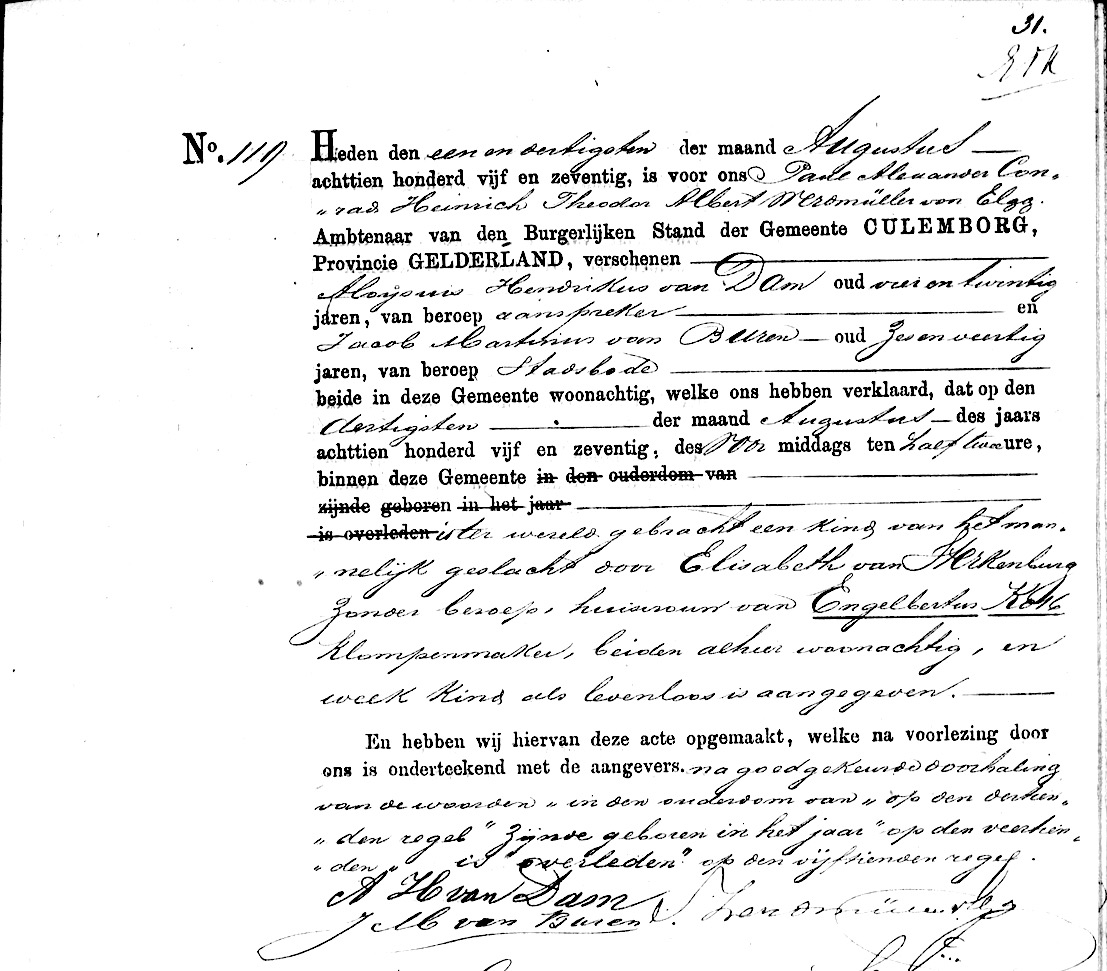 31.
No. 119 Heden den een en dertigsten der maand Augustus
achttien honderd vijf en zeventig, is voor ons Paul Alexander Con„
„rad Heinrich Theodor Albert Werdmüller von Elgg.
Ambtenaar van den Burgerlijken Stand der Gemeente CULEMBORG,
Provincie GELDERLAND, verschenen
Aloysius Hendrikus van Dam oud vier en twintig
jaren, van beroep aanspreker en
Jacob Martinus van Buren oud zes en veertig
jaren, van beroep Stadsbode
beide in deze Gemeente woonachtig, welke ons hebben verklaard, dat op den
dertigsten der maand Augustus des jaars
achttien honderd vijf en zeventig, des voor middags ten half twee ure,
binnen deze Gemeente in den ouderdom van
zijnde geboren in het jaar
is overleden is ter wereld gebracht een kind van het man„
„nelijk geslacht door Elisabeth van
zonder beroep, huisvrouw van Engelbertus Kok
klompenmaker, beiden alhier woonachtig, en
welk kind als levenloos is aangegeven.
En hebben wij hiervan deze acte opgemaakt, welke na voorlezing door
ons is onderteekend met de aangevers. na goedgekeurde doorhaling
van de woorden „in den ouderdom van„ op den dertien„
„den regel" zijnde geboren in het jaar" op den veertien„
„den„ is overleden" op den vijftienden regel.
A H van Dam
J M van Buren